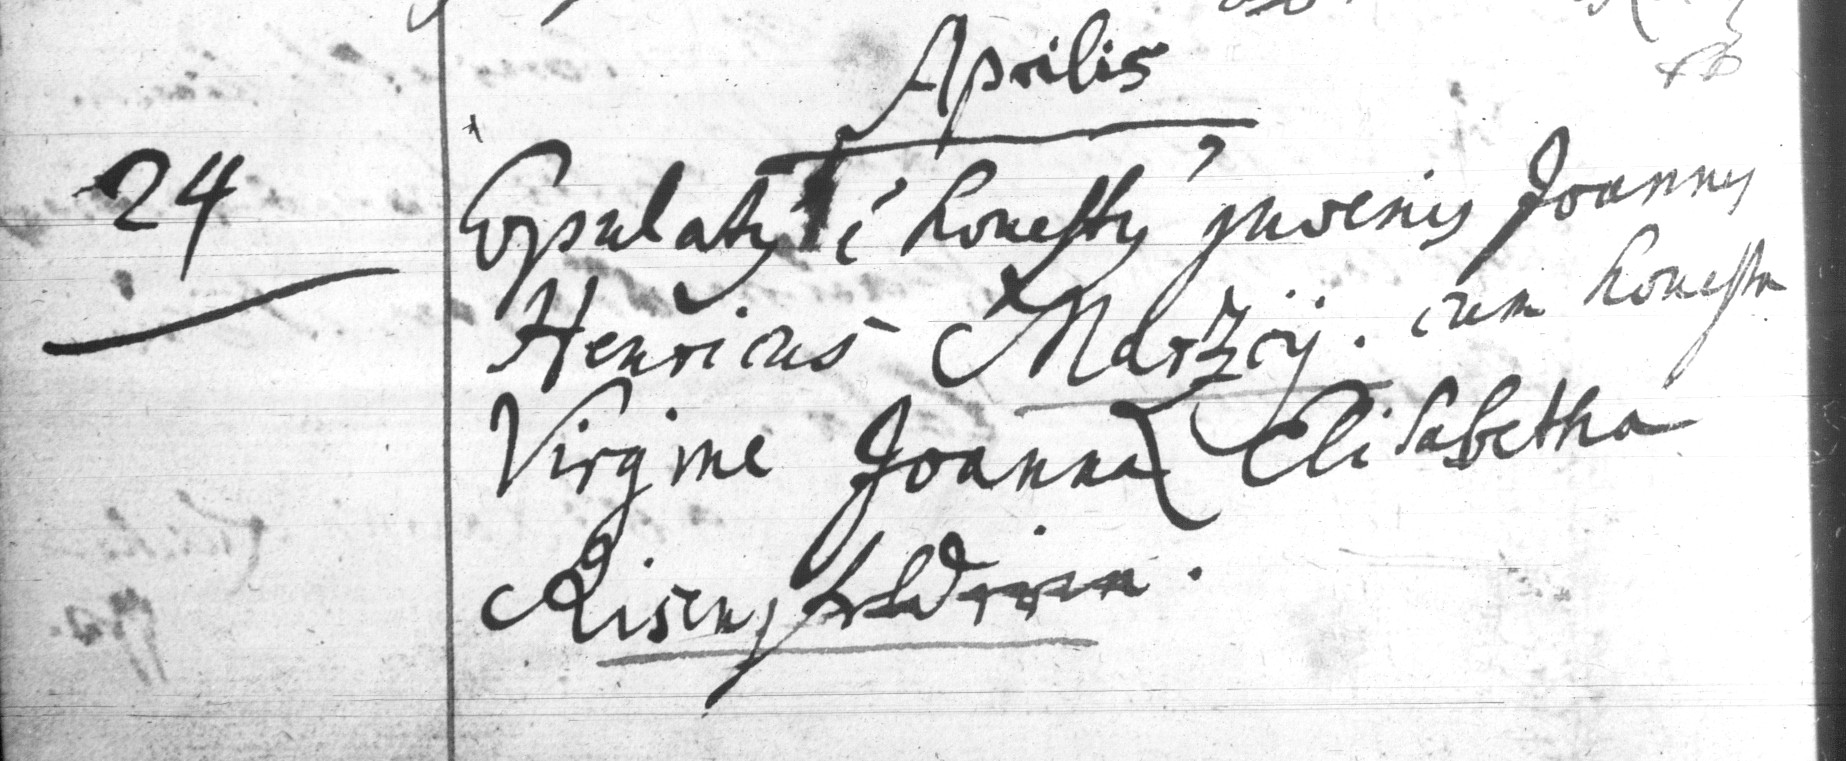 Aprilis
24 Copulatus ē honestus juvenis Joannes
Henricus Martzij. cum honesta
Virgine Joanna Elisabetha